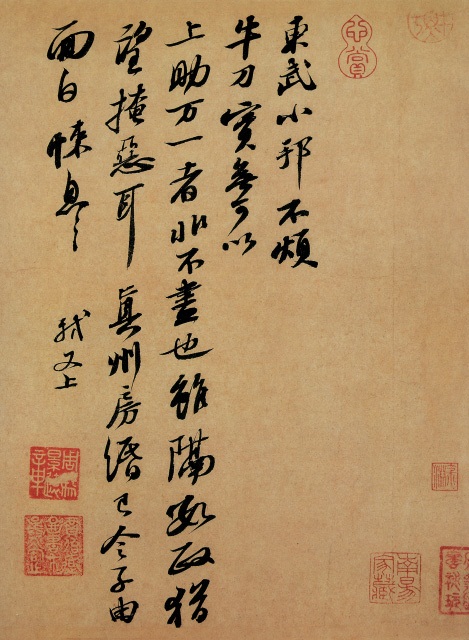 東武小邦不煩
牛刀實無可以
上助万一者非不盡也雖隔數政猶
望掩惡耳真州房緡已令子由
面白悚息〻 軾又上